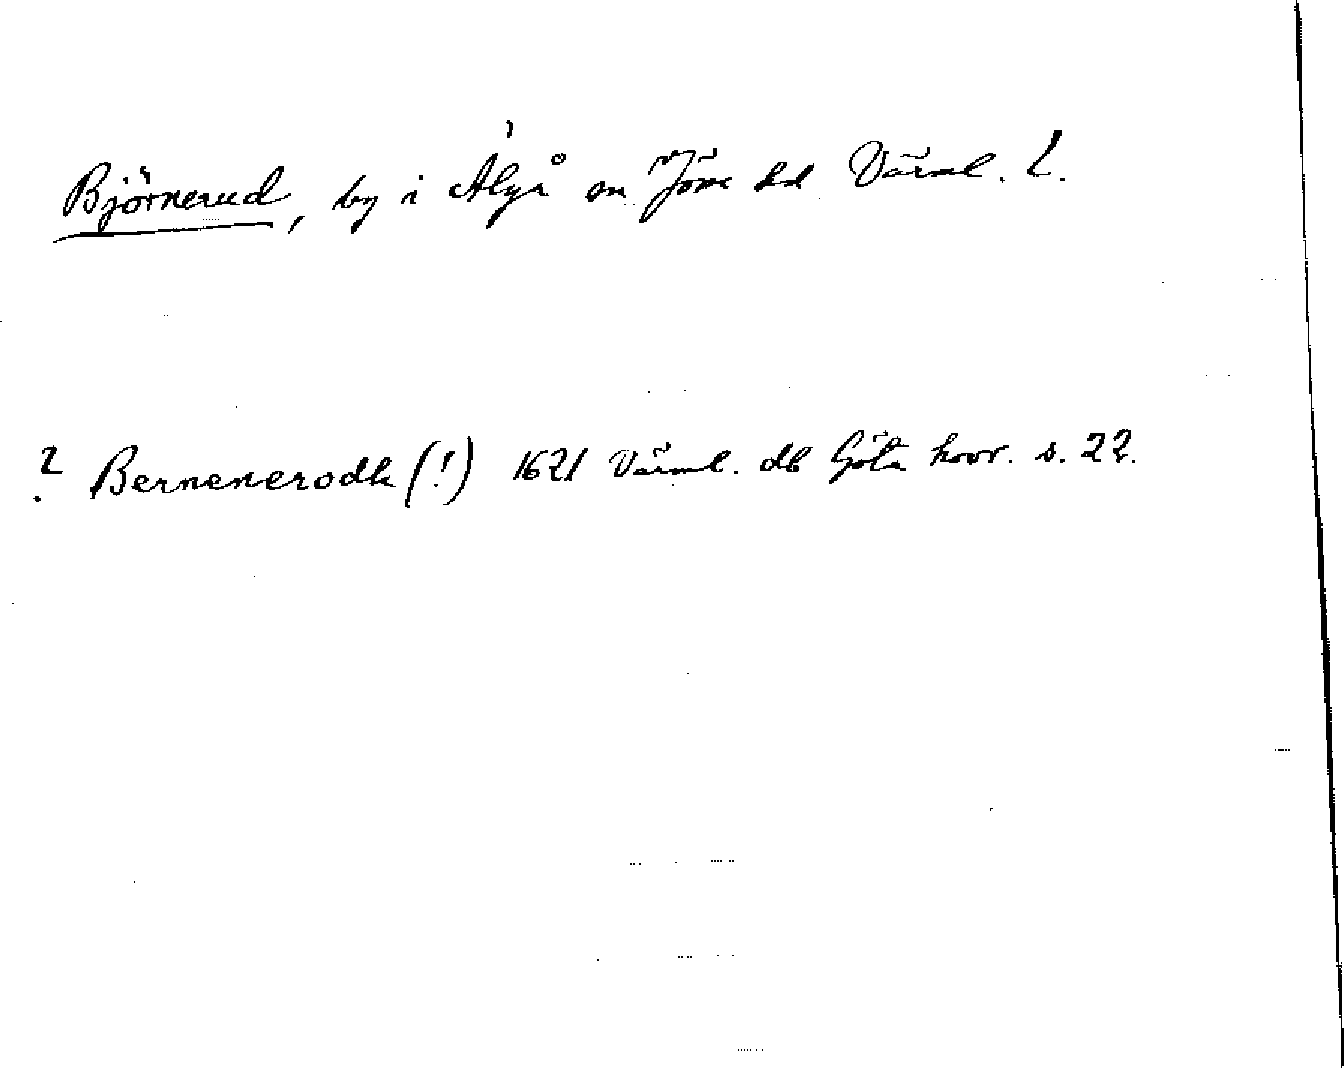 Björnerud, by i Älgå sn Jösse hd Värml. l.
? Bernenerodh (!) 1621 Värml. db Göta hovr. s. 22.